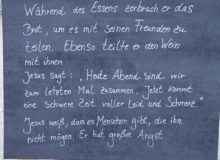 Während des Essens zerbrach er das
Brot, um es mit seinen Freunden zu
teilen. Ebenso teilte er den Wein
mit ihnen
Jesus sagt: „Heute Abend sind wir
zum letzten Mal zusammen. Jetzt kommt
eine schwere Zeit voller Leid und Schmerz"
Jesus weiß, dass es Menschen gibt, die ihn
nicht mögen. Er hat große Angst.